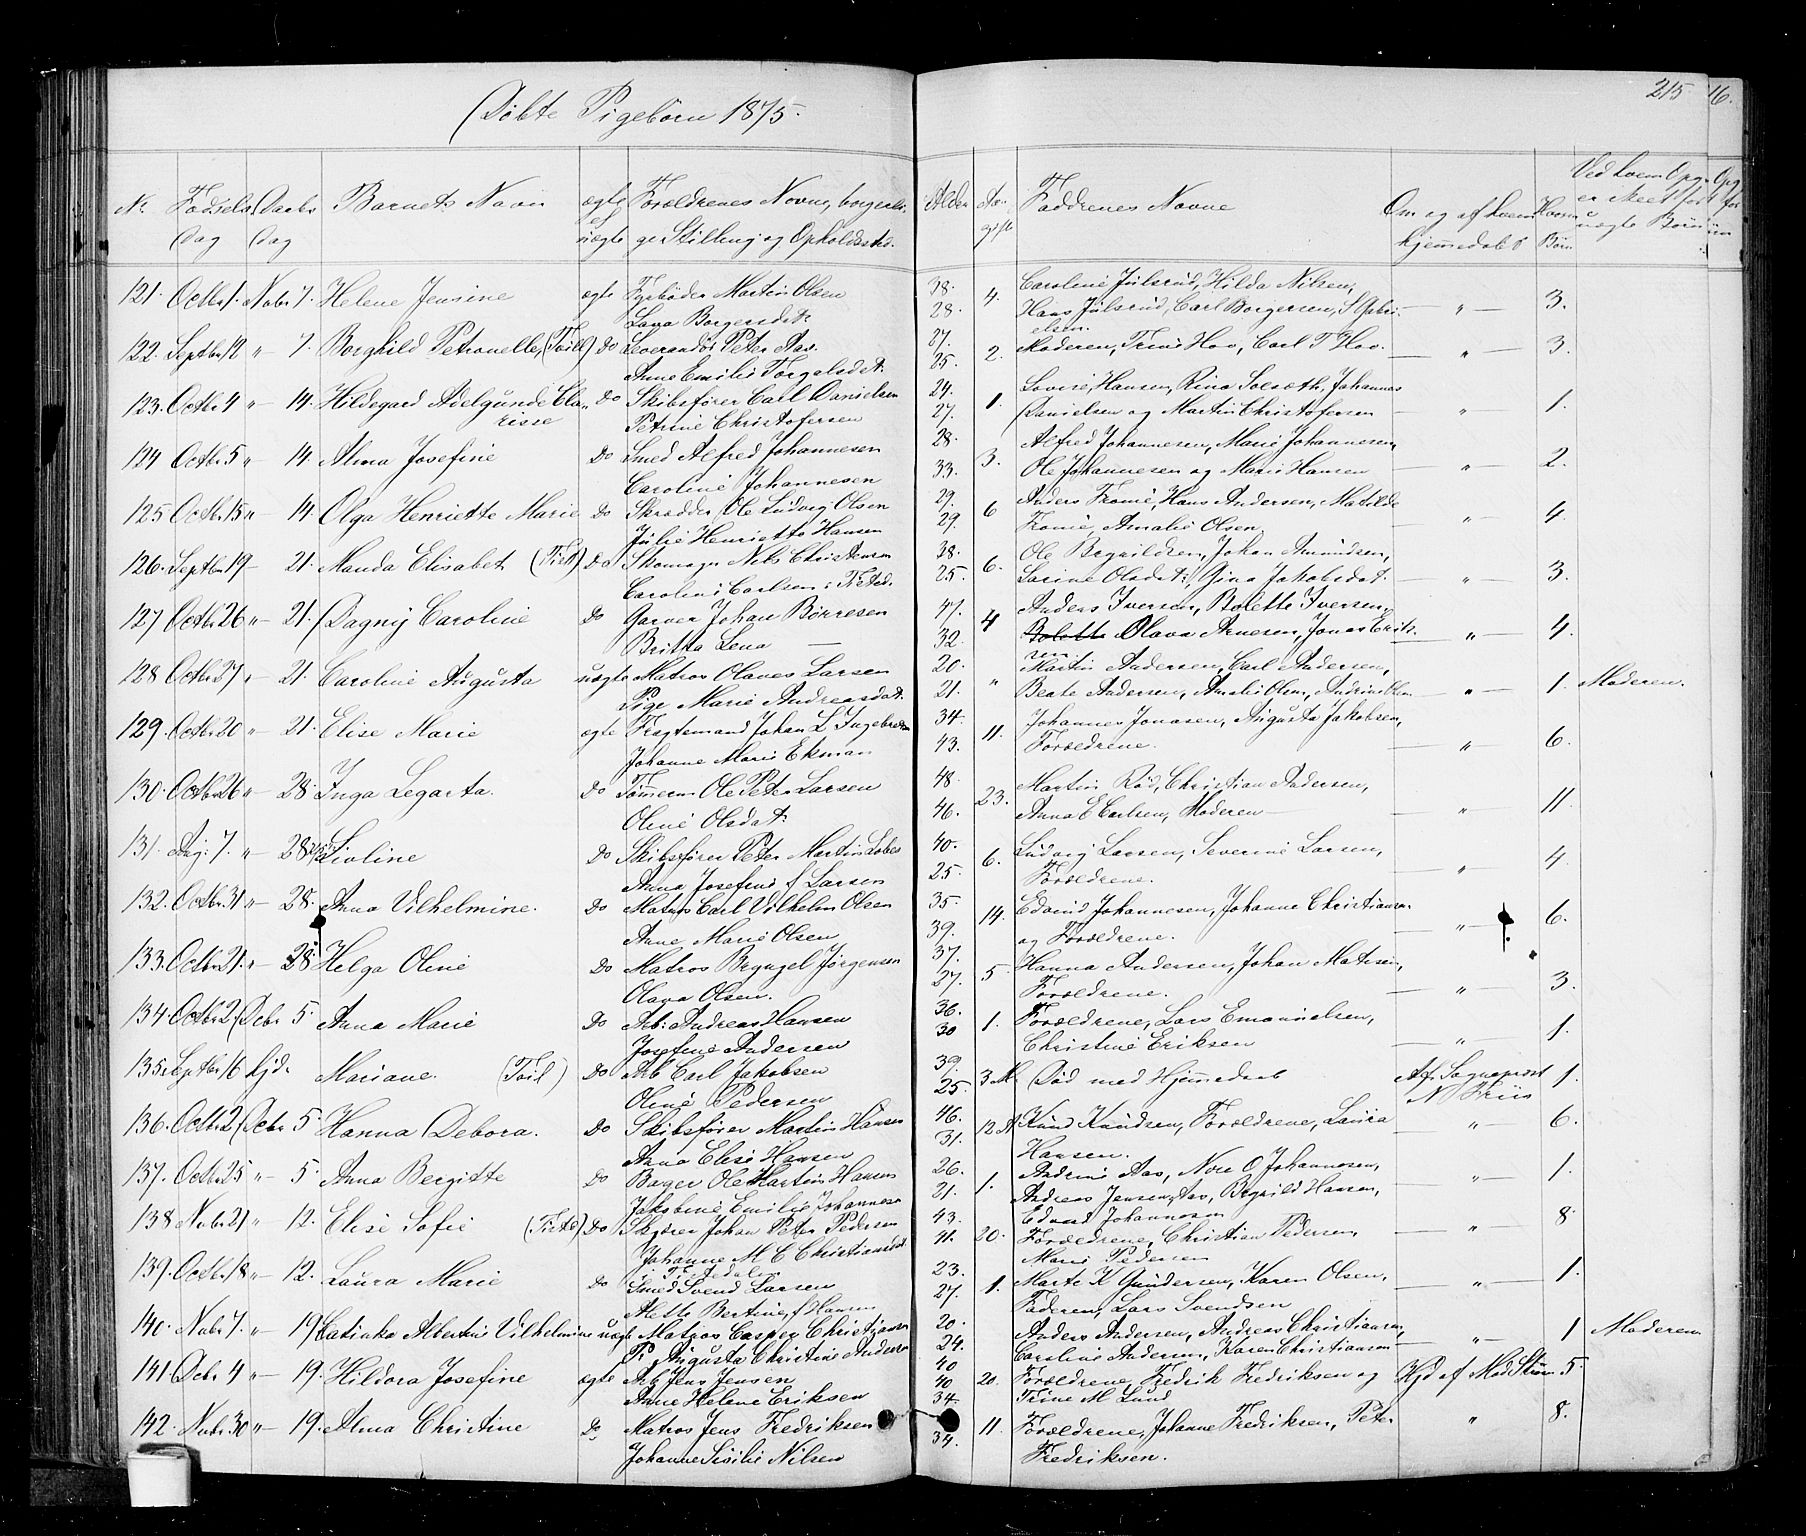 Døbte Pigebørn 1875.
215 16.
No. Fødsels Dag Daabs Dag Barnets Navn ægte el uægte Forældrenes Navne, borgerli-
ge Stilling og Opholdssted. Alder Faddrenes Navne Om og af hvem hjemmedøbt Børn
121. Octbr 1. Nvbr 7. Helene Jensine ægte Fyrbøder Martin Olsen 38. 4. Caroline Julsrud, Hilda Nilsen,
Lava Borgersdat: 28. Hans Julsrud, Carl Borgersen, — " — 3.
122. Septbr 12 " 7. Borghild Petronelle, Do Leverandør Peter Aas. 27. 2. Moderen, Trine Hov, Carl T Hov.
Anne Emilie Torgelsdat. 25. — " — 3.
123. Octbr 4 " 14. Hildegard Adelgunde Cla- Do Skibsfører Carl Danielsen 24. 1. Lovise Hansen, Rina Solseth, Johannes
risse Petrine Christofersen 27. Danielsen og Martin Christofersen — " — 1.
124 Octbr 5 " 14. Alma Josefine Do Smed Alfred Johannesen 28. 3. Alfred Johannesen, Marie Johannesen,
Caroline Johannesen 33. Ole Johannesen og Marie Hansen — " — 2.
125 Octbr 15 " 14. Olga Henriette Marie Do Skrædder Ole Ludvig Olsen 29. 6 Anders Tronie, Hans Andersen, Matilde
Julie Henriette Hansen 29. Tronie, Amalie Olsen — " — 4.
126. Septbr 19 — 21. Manda Elisabet (Tistd) Do Skomager Nils Christensen 38. 6. Ole Brynildsen, Johan Amundsen,
Caroline Carlsen i Tistad. 25. Sarine Olsdat:, Gina Jakobsdat. — " — 3.
127 Octbr 26 " 21. Dagny Caroline Do Garver Johan Børresen 47. 4 Anders Iversen, Bolette Iversen,
Britta Lena — 32. Bolette Olava Arnesen, Jonas Erik- — " — 4.
sen.
128 Octbr 27 " 21. Caroline Augusta uægte Matros Olaves Larsen 20. " Martin Andersen, Carl Andersen,
Pige Marie Andreasdat. 21. Beate Andersen, Amalie Olsen, Andrine Olsen — " — 1. Moderen.
129. Octbr 20 " 21. Elise Marie ægte Fragtemand Johan L Ingebretsen 34. 11. Johannes Jonasen, Augusta Jakobsen,
Johanne Marie Ekman 43. Forældrene. — " — 6.
130. Octbr 26 " 28. Inga Legarta. Do Tømmerm Ole Peter Larsen 48. 23. Martin Rød, Christian Andersen,
Oline Olsdat: 46. Anna E Carlsen, Moderen — " — 11.
131. Aug: 7. " 28 Lioline Do Skibsfører Peter Martin 40. 6. Ludvig Larsen, Severine Larsen,
Anna Josefine f Larsen 25. Forældrene. — " — 4.
132. Octbr. 31 " 28. Anna Vilhelmine. Do Matros Carl Vilhelm Olsen 35. 14. Edvard Johannesen, Johanne Christiansen
Anne Marie Olsen 39. og Forældrene. — " — 6.
133. Octbr. 21. " 28 Helga Oline Do Matros Bryngel Jørgensen 37. 5 Hanna Andersen, Johan Matisen,
Olava Olsen. 27. Forældrene. — " — 3.
134. Octbr 2 Debr 5. Anna Marie Do Arb: Andreas Hansen 36. 1. Forældrene, Lars Emanuelsen,
Josefine Andersen 30 Christine Eriksen — " — 1.
135. Septbr 16 hjd. Mariane. (Toil) Do Arb Carl Jakobsen 39. 3 M Død med Hjemmedaab Af Sogneprest 1.
Oline Pedersen 25. N Friis
136. Octbr 2 Debr 5. Hanna Debora. Do Skibsfører Martin Hansen 46. 12 Knud Knudsen, Forældrene, Laura — " — 6.
Anna Elise Hansen 31. Hansen.
137. Octbr 25 " 5. Anna Bergitte Do Bager Ole Martin Hansen 26. 1. Andrine Aas, Nore O Johannesen,
Jakobine Emilie Johannesen 21. Andreas Jensen Aas, Brynild Hansen, — " — 1.
Edvard Johannesen
138 Nvbr 21 " 12. Elise Sofie (Tistd.) Do Johan Peter Pedersen 43. 20. Forældrene, Christian Pedersen, — " — 8.
Johanne M C Christiansdat 41. Marie Pedersen
139. Octbr 18 " 12. Laura Marie Do Smed Svend Larsen 23. 1. Marte K Gundersen, Karen Olsen, — " — 1.
Alette Bertine, f Hansen 27. Faderen, Lars Svendsen
140. Nvbr 7. " 19. Katinka Albertine Vilhelmine uægte Matros Casper Christiansen 20. Anders Andersen, Andreas Christiansen, — " — 1 Moderen
Pi. Augusta Christine Andersen 24. Caroline Andersen, Karen Christiansen
141. Debr 4 " 19. Hildora Josefine ægte Arb Jens Jensen 40 20. Forældrene, Fredrik Fredriksen og Hjd af Mad 5
Anne Helene Eriksen 40 Trine M Lund
142. Nvbr 30 " 19. Alma Christine Do Matros Jens Fredriksen 34. 11. Forældrene, Johanne Fredriksen, Peter " 8.
Johanne Sisilie Nilsen 34. Fredriksen.